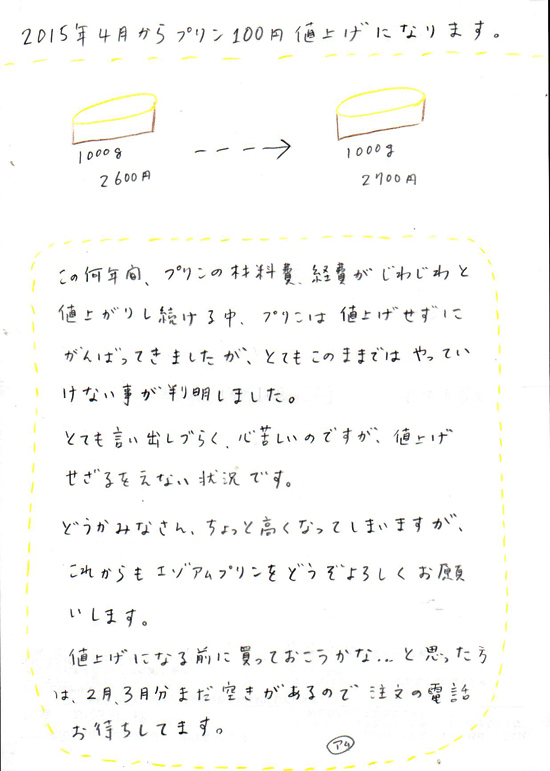 2015年4月からプリン100円値上げになります。
1000g
2600円
1000g
2700円
この何年間、プリンの材料費、経費がじわじわと
値上がりし続ける中、プリンは値上げせずに
がんばってきましたが、とてもこのままではやってい
けない事が判明しました。
とても言い出しづらく、心苦しいのですが、値上げ
せざるをえない状況です。
どうかみなさん、ちょっと高くなってしまいますが、
これからもエゾアムプリンをどうぞよろしくお願
いします。
値上げになる前に買っておこうかな...と思った方
は、2月、3月分まだ空きがあるので注文の電話
お待ちしてます。
アム